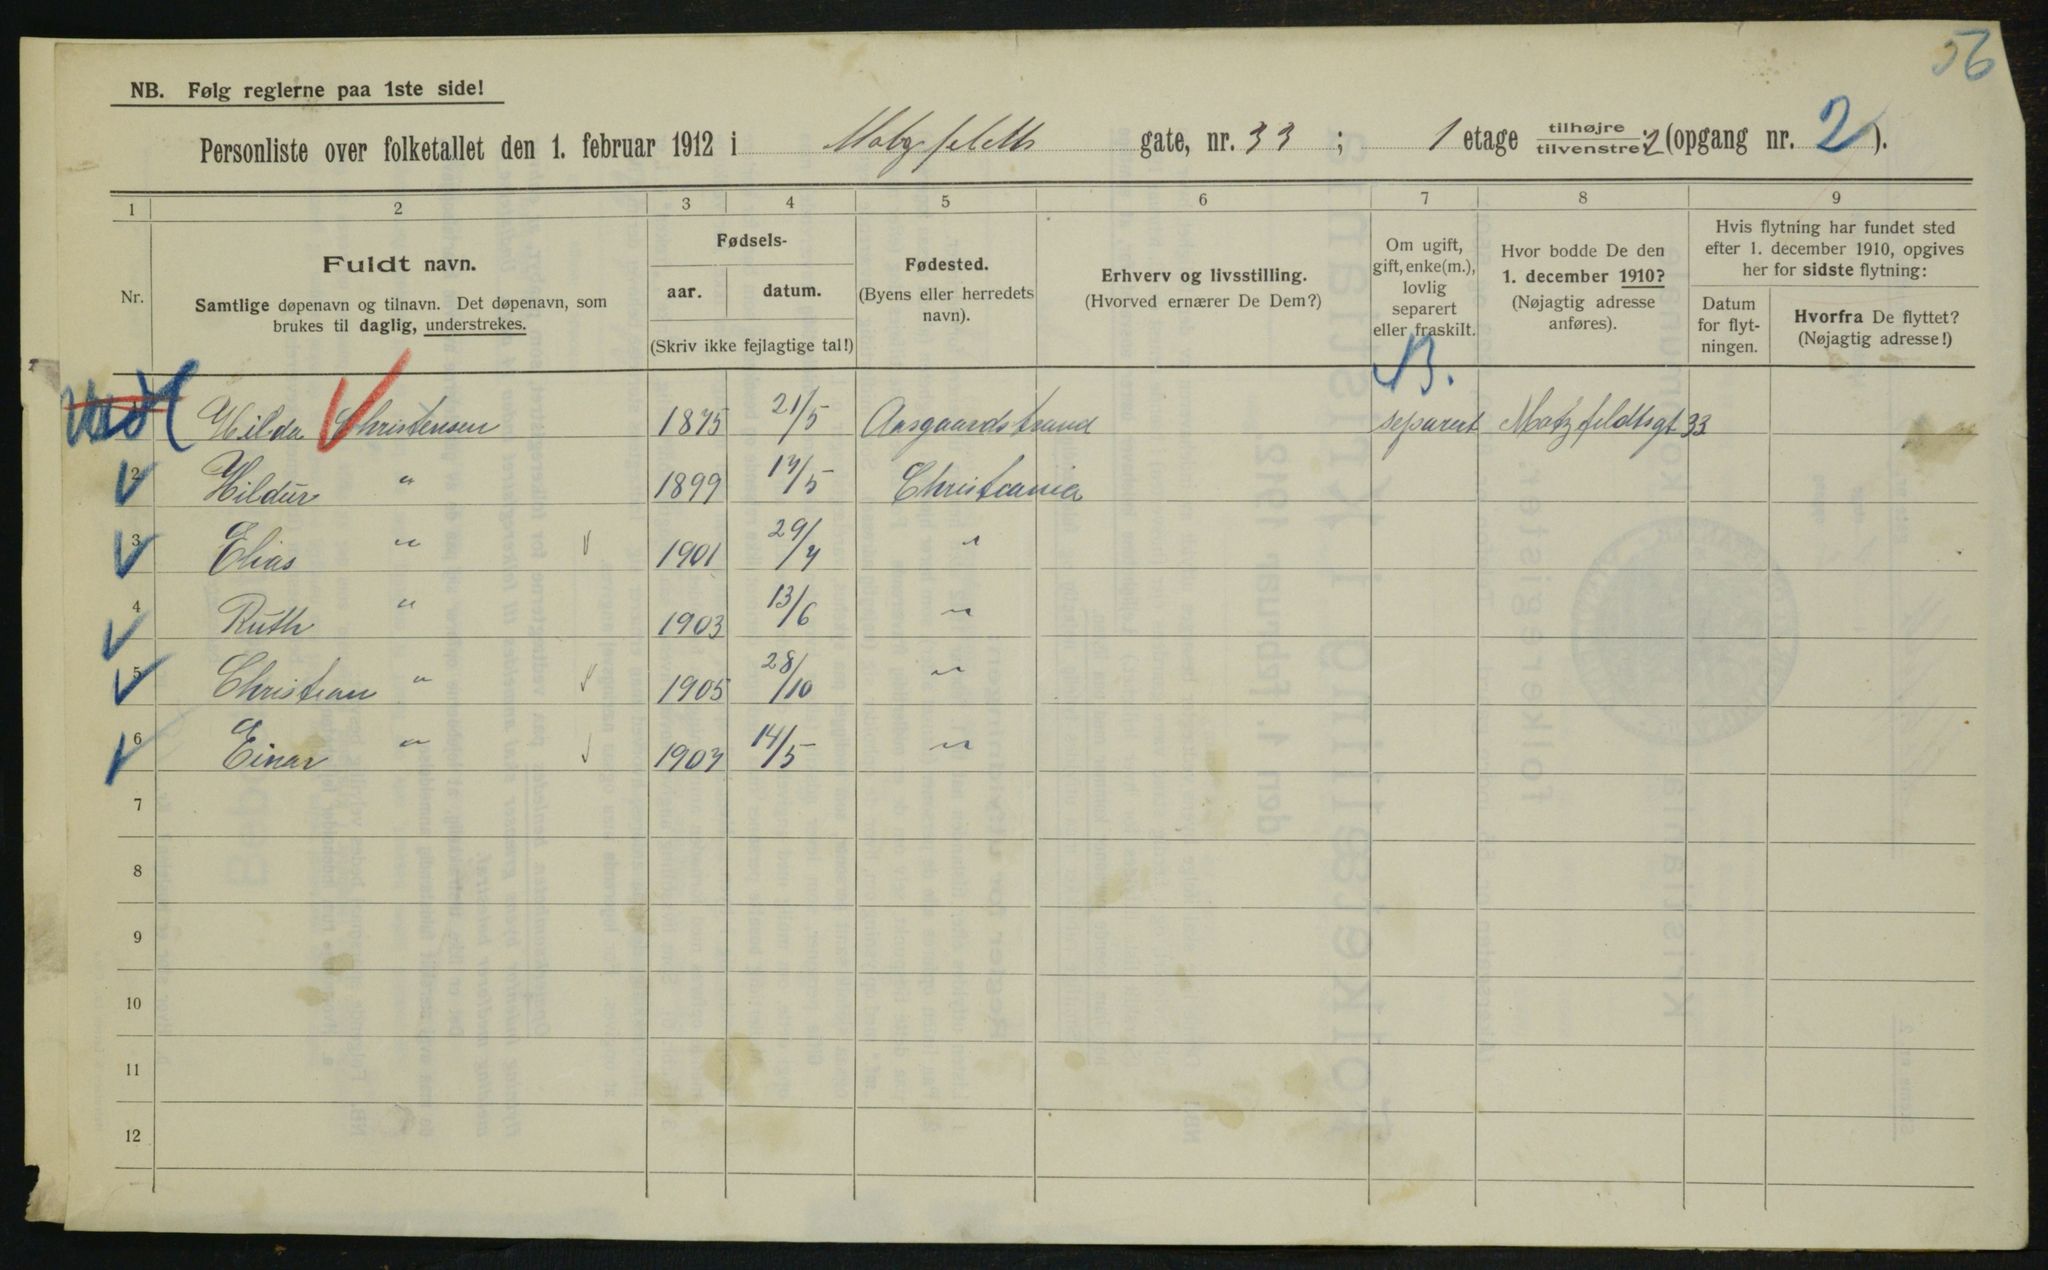 56
NB. Følg reglerne paa 1ste side!
Personliste over folketallet den 1. februar 1912 i Motzfeldts gate, nr. 33 ; 1 etage tilhøjre tilvenstre: 2 (opgang nr. 2 ).
1 2 3 4 5 6 7 8 9
Nr.
Fuldt navn.
Samtlige døpenavn og tilnavn. Det døpenavn, som
brukes til daglig, understrekes.
Fødsels-
aar. datum.
(Skriv ikke fejlagtige tal!)
Fødested.
(Byens eller herredets
navn).
Erhverv og livsstilling.
(Hvorved ernærer De Dem?)
Om ugift,
gift, enke(m.),
lovlig
separert
eller fraskilt.
Hvor bodde De den
1. december 1910?
(Nøjagtig adresse
anføres).
Hvis flytning har fundet sted
efter 1. december 1910, opgives
her for sidste flytning:
Datum
for flyt-
ningen.
Hvorfra De flyttet?
(Nøjagtig adresse!)
Hilda Christensen 1875 21/5 Aasgaardstrand separert Motzfeldtsgt 33
2 Hildur " 1899 17/5 Christiania
3 Elias " 1901 29/7 "
4 Ruth " 1903 13/6 "
5 Christian " 1905 28/10 "
6 Einar " 1907 14/5 "
7
8
9
10
11
12